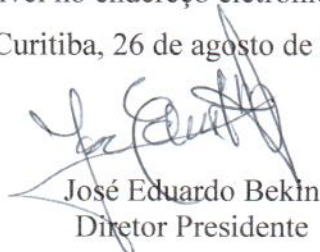 no endereço eletrôni
Curitiba, 26 de agosto de
José Eduardo Bekin
Diretor Presidente